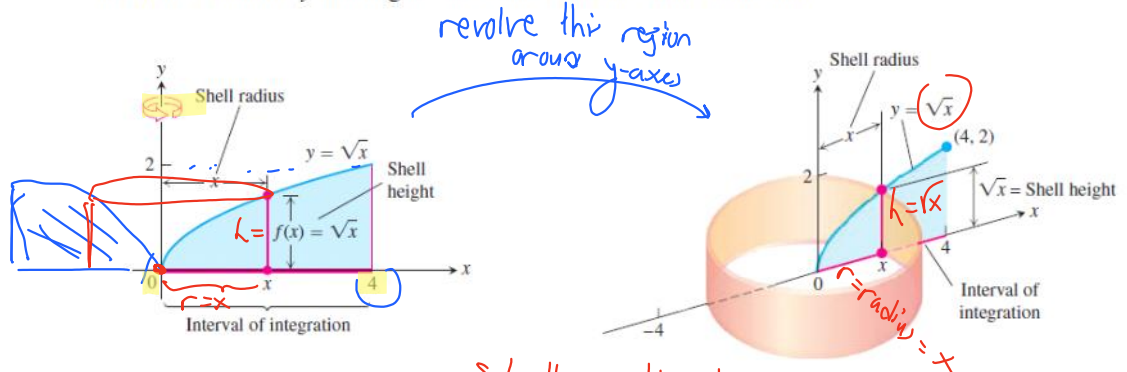 revolve this region
around y-axes
y
Shell radius
2
x
y = √x
Shell
height
h= f(x) = √x
0
r=x
x
4
x
Interval of integration
y
Shell radius
y = √x
x
(4, 2)
2
h=√x
√x = Shell height
x
4
x
0
r=radius = x
Interval of
integration
−4